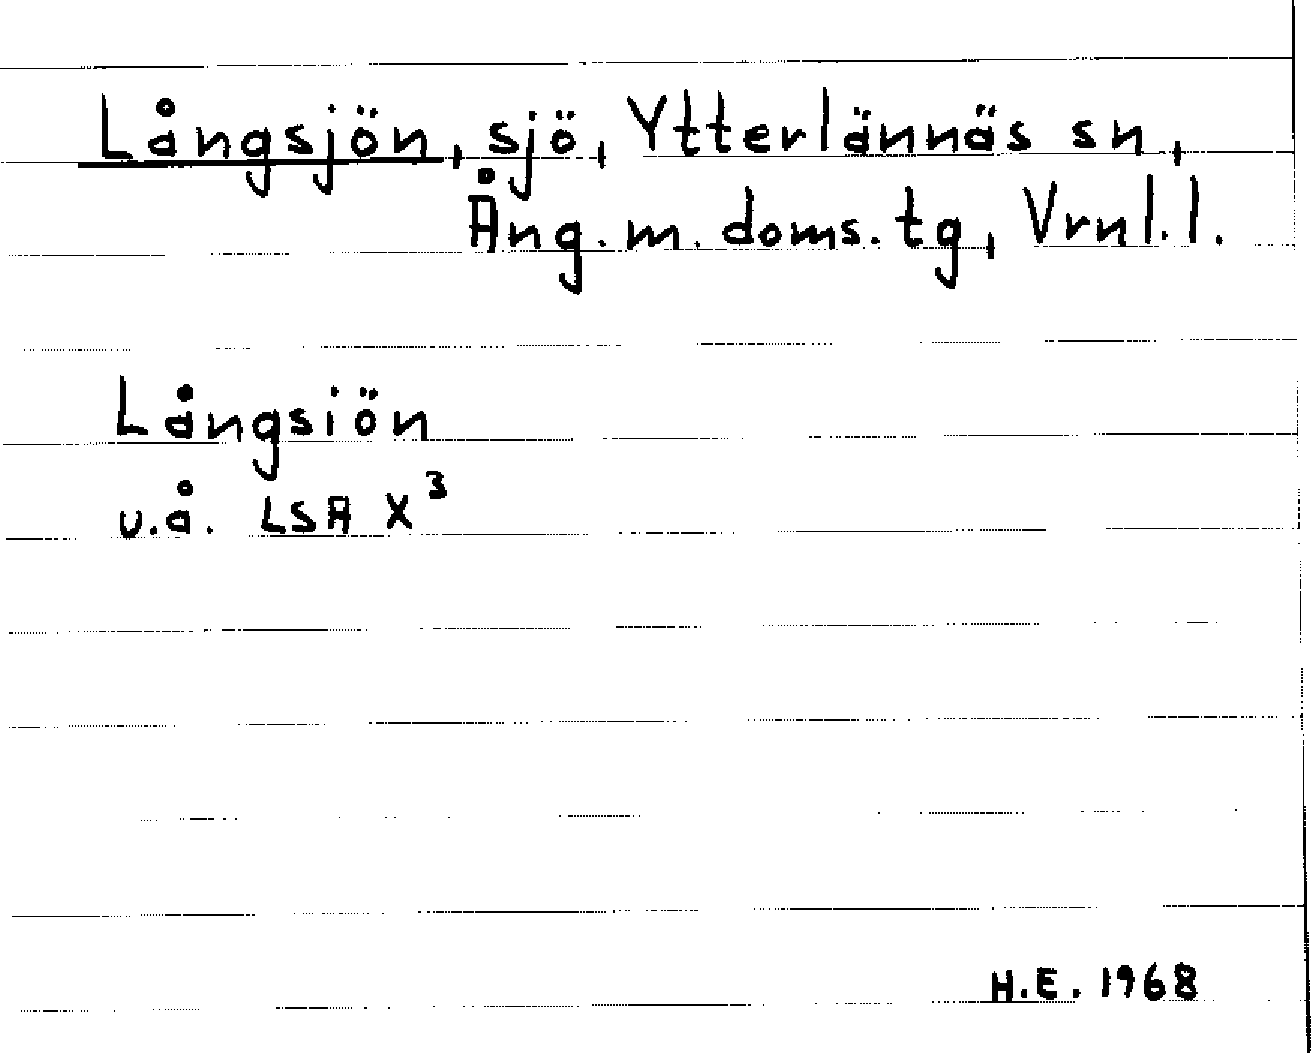 Långsjön, sjö, Ytterlännäs sn,
Ång. m. doms. tg, Vrnl. l.
Långsiön
u.å. LSA X³
H.E. 1968